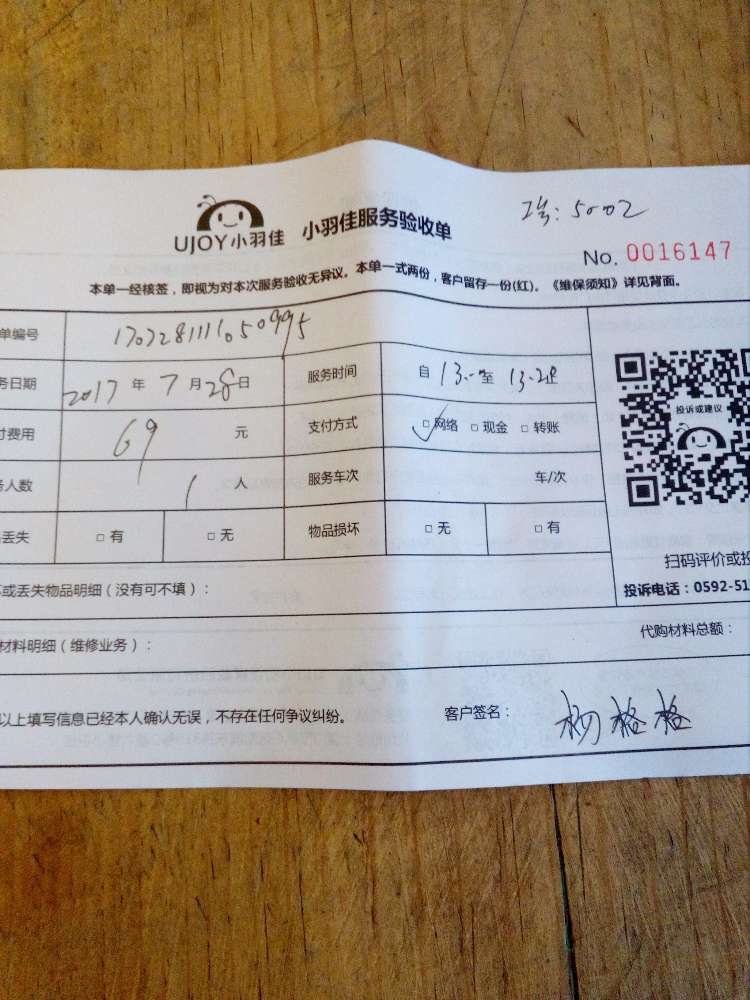 工号:5002
UJOY小羽佳 小羽佳服务验收单
No. 0016147
本单一经核签，即视为对本次服务验收无异议。本单一式两份，客户留存一份(红)。《维保须知》详见背面。
单编号
日期 2017 年 7 月 28 日 服务时间 自 13:00 至 13:20止
费用 69 元 支付方式 ☑网络 □现金 □转账
人数 1 人 服务车次 车/次
丢失 □有 □无 物品损坏 □无 □有
投诉或建议
扫码评价或投
投诉电话：0592-51
或丢失物品明细（没有可不填）：
材料明细（维修业务）： 代购材料总额：
以上填写信息已经本人确认无误，不存在任何争议纠纷。 客户签名： 杨格格